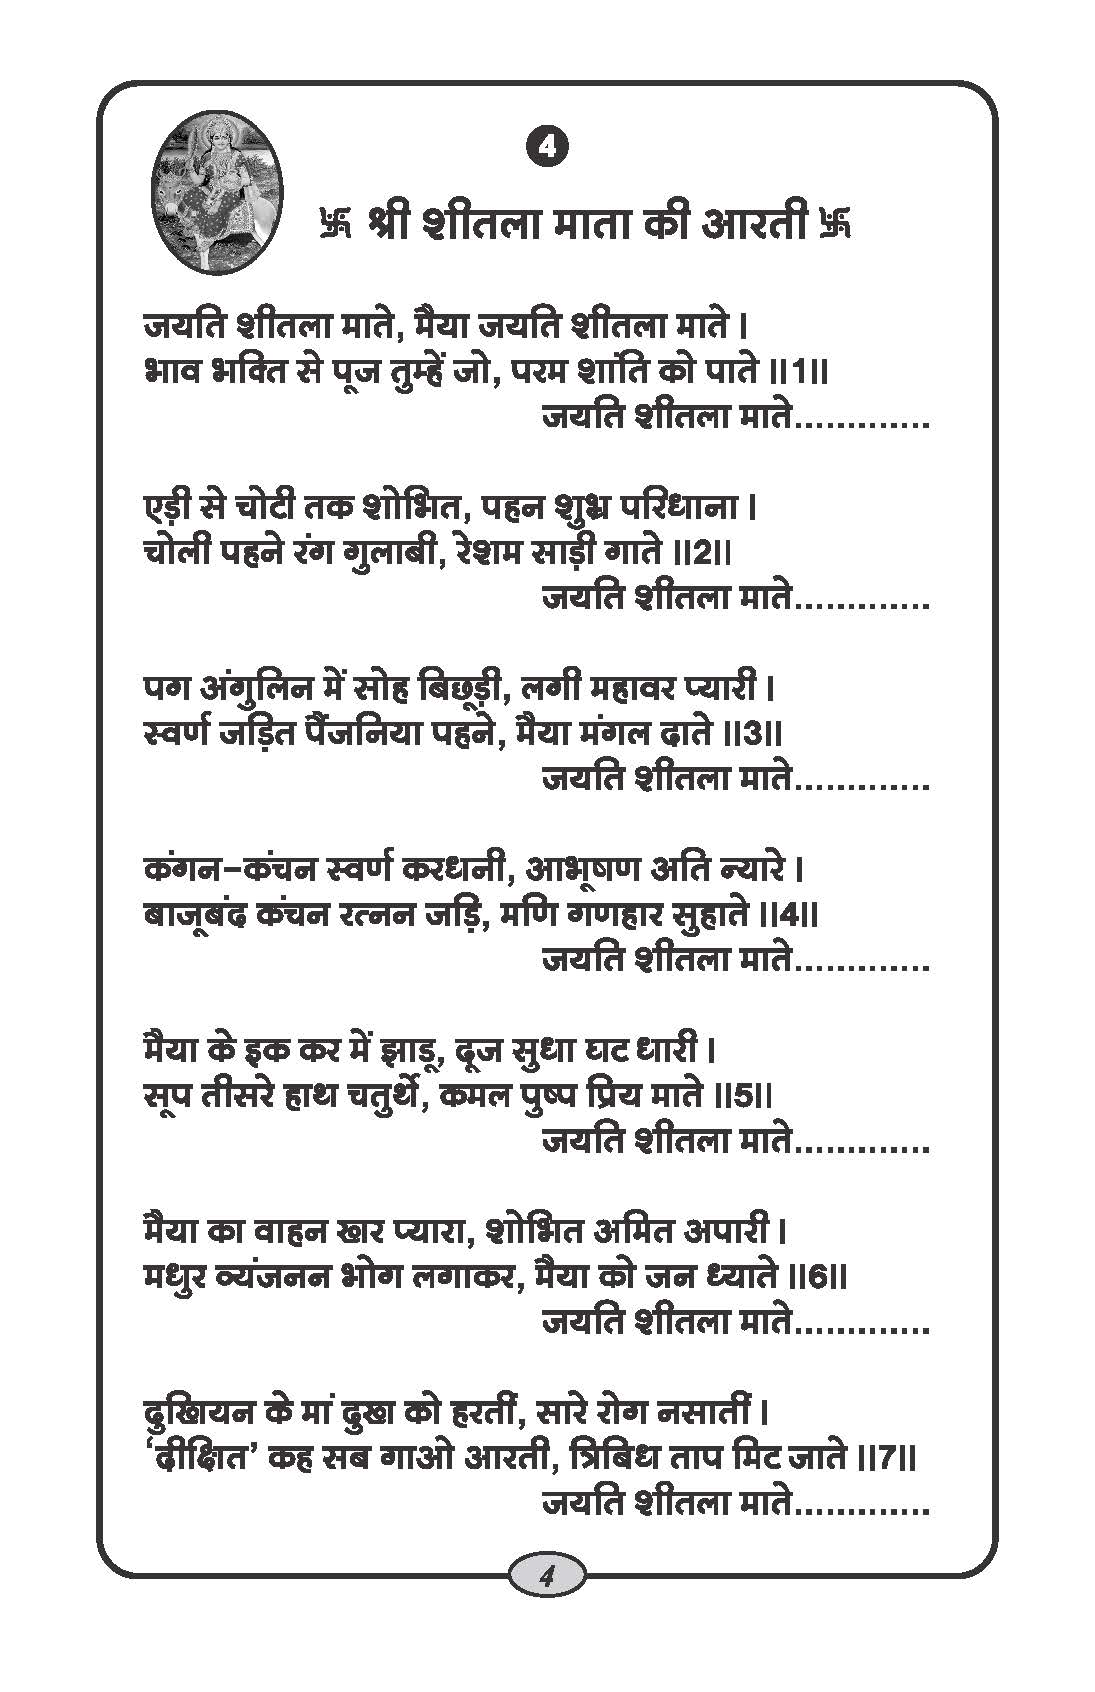 4
卐 श्री शीतला माता की आरती 卐
जयति शीतला माते, मैया जयति शीतला माते ।
भाव भक्ति से पूज तुम्हें जो, परम शांति को पाते ॥1॥
जयति शीतला माते.............
एड़ी से चोटी तक शोभित, पहन शुभ्र परिधाना ।
चोली पहने रंग गुलाबी, रेशम साड़ी गाते ॥2॥
जयति शीतला माते.............
पग अंगुलिन में सोह बिछूड़ी, लगी महावर प्यारी ।
स्वर्ण जड़ित पैंजनिया पहने, मैया मंगल दाते ॥3॥
जयति शीतला माते.............
कंगन-कंचन स्वर्ण करधनी, आभूषण अति न्यारे ।
बाजूबंद कंचन रत्नन जड़ि, मणि गणहार सुहाते ॥4॥
जयति शीतला माते.............
मैया के इक कर में झाडू, दूज सुधा घट धारी ।
सूप तीसरे हाथ चतुर्थे, कमल पुष्प प्रिय माते ॥5॥
जयति शीतला माते.............
मैया का वाहन खर प्यारा, शोभित अमित अपारी ।
मधुर व्यंजनन भोग लगाकर, मैया को जन ध्याते ॥6॥
जयति शीतला माते.............
दुखियन के मां दुख को हरतीं, सारे रोग नसातीं ।
‘दीक्षित’ कह सब गाओ आरती, त्रिबिध ताप मिट जाते ॥7॥
जयति शीतला माते.............
4